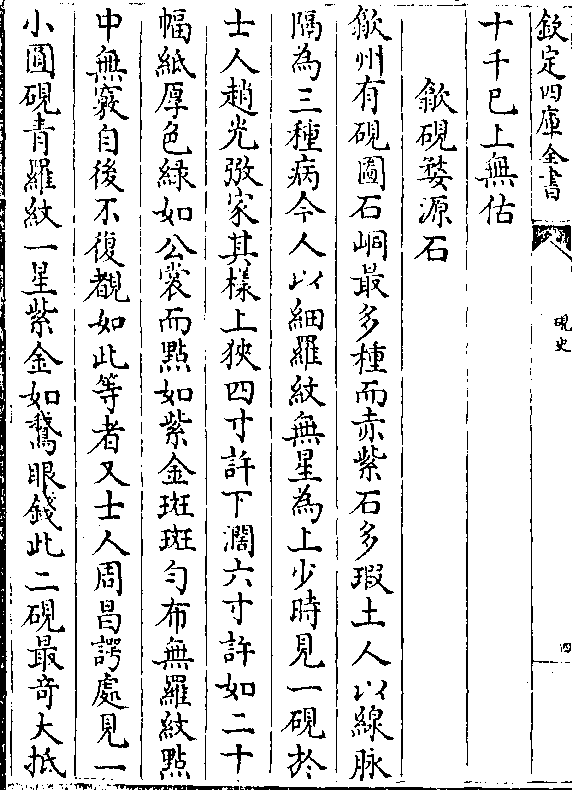 欽定四庫全書
硯史
四
十千已上無估
歙硯婺源石
歙州有硯圖石峒最多種而赤紫石多瑕土人以線脉
隔為三種病今人以細羅紋無星為上少時見一硯於
士人趙光弼家其樣上狹四寸許下濶六寸許如二十
幅紙厚色緑如公裳而點如紫金斑斑勻布無羅紋點
中無竅自後不復覩如此等者又士人周昌諤處見一
小圓硯青羅紋一星紫金如鵞眼錢此二硯最奇大抵